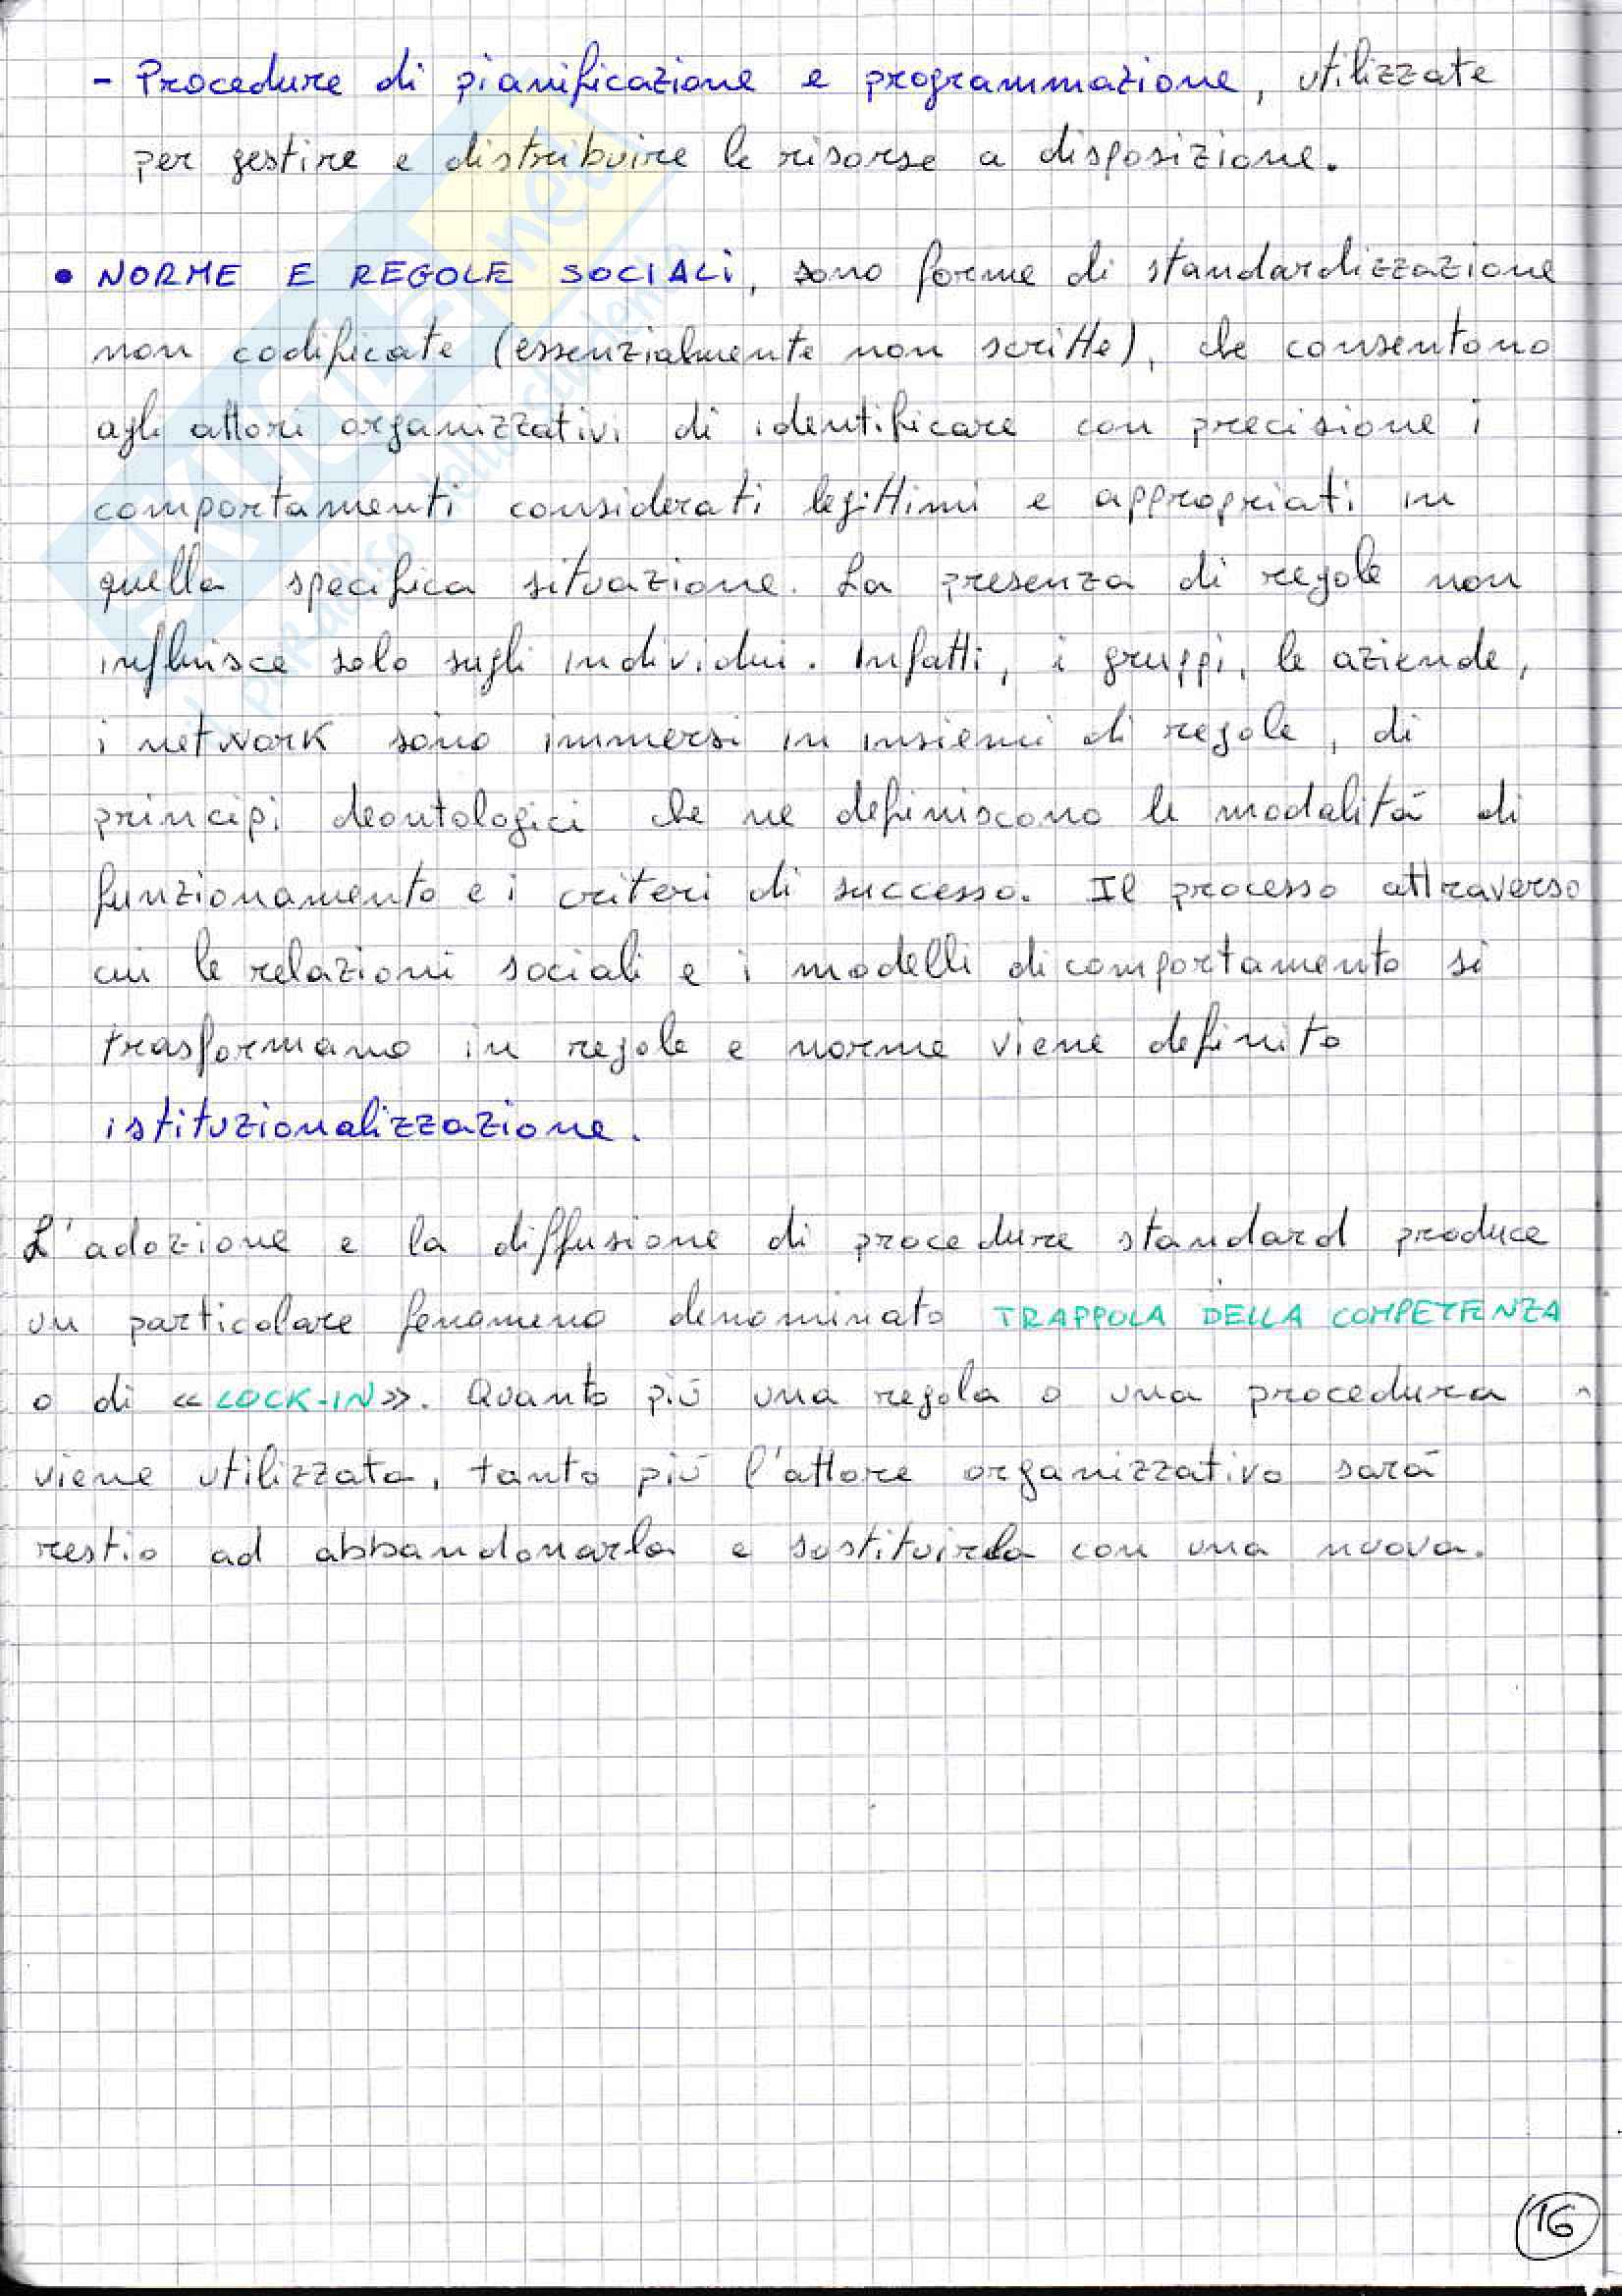 - Procedure di pianificazione e programmazione, utilizzate
per gestire e distribuire le risorse a disposizione.
• NORME E REGOLE SOCIALI, sono forme di standardizzazione
non codificate (essenzialmente non scritte), che consentono
agli attori organizzativi di identificare con precisione i
comportamenti considerati legittimi e appropriati in
quella specifica situazione. La presenza di regole non
influisce solo sugli individui. Infatti, i gruppi, le aziende,
i network sono immersi in insiemi di regole, di
principi deontologici che ne definiscono le modalità di
funzionamento e i criteri di successo. Il processo attraverso
cui le relazioni sociali e i modelli di comportamento si
trasformano in regole e norme viene definito
istituzionalizzazione.
L'adozione e la diffusione di procedure standard produce
un particolare fenomeno denominato TRAPPOLA DELLA COMPETENZA
o di «LOCK-IN». Quanto più una regola o una procedura
viene utilizzata, tanto più l'attore organizzativo sarà
restio ad abbandonarla e sostituirla con una nuova.
16